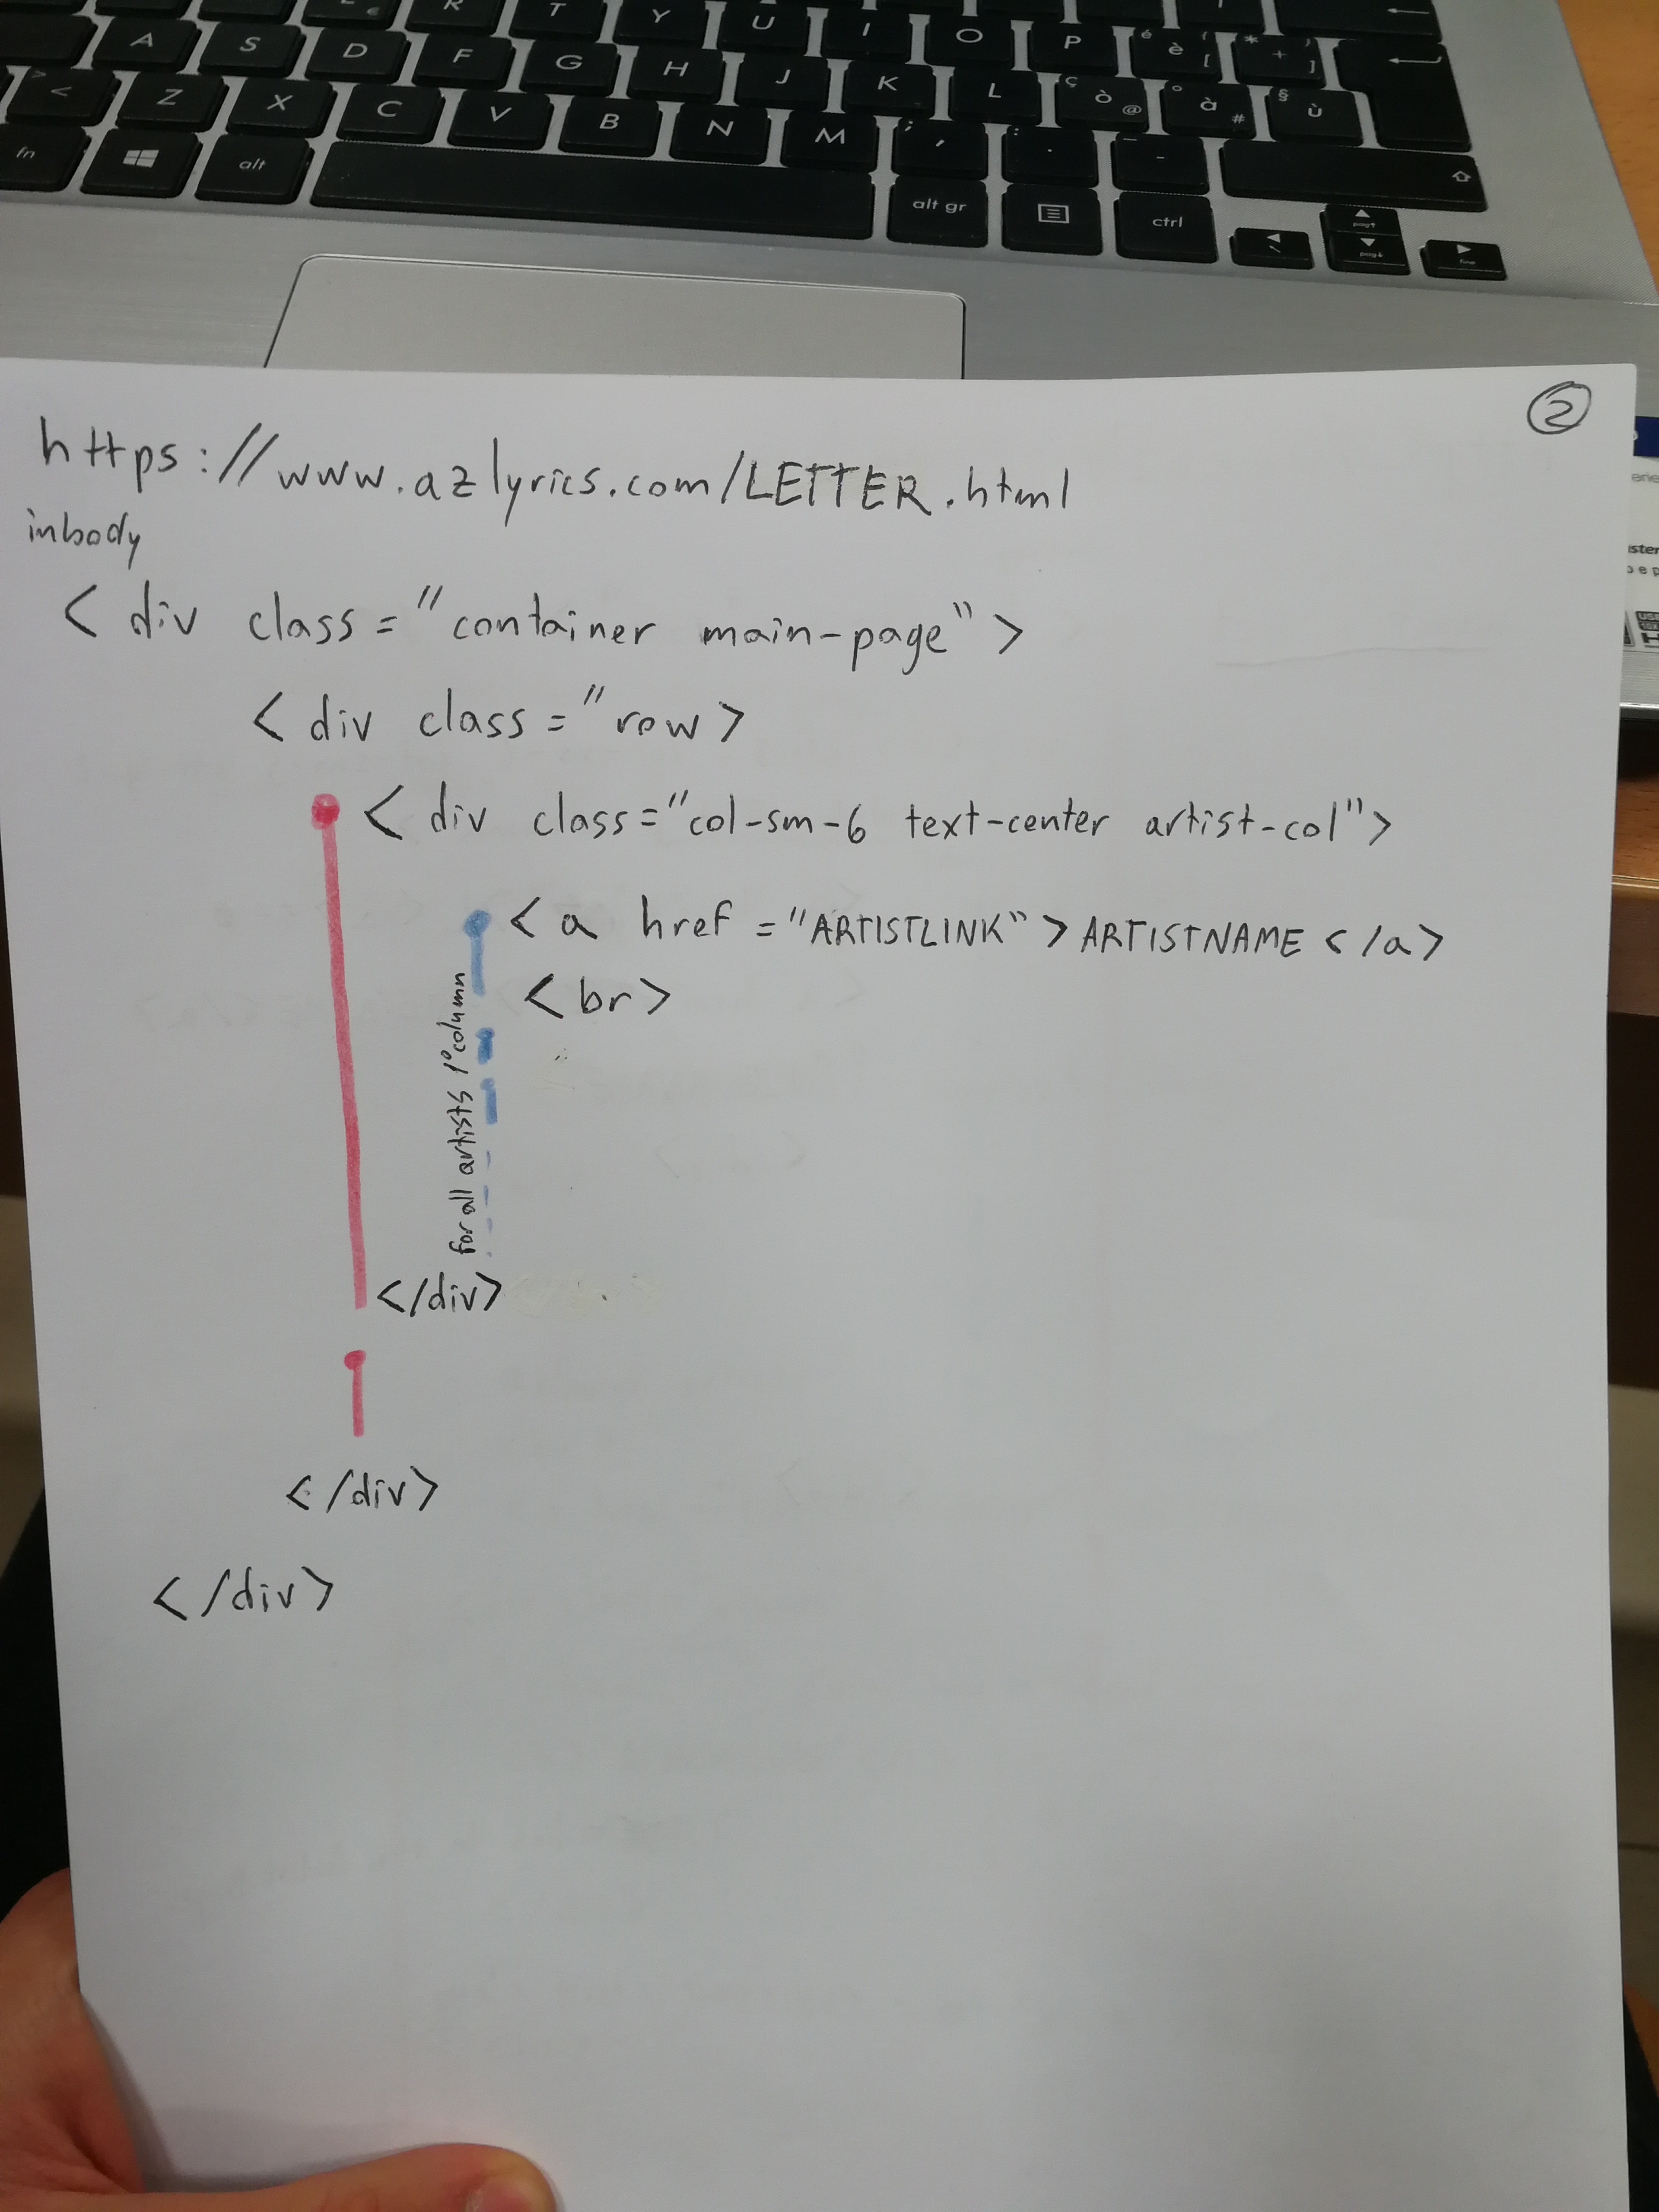 R T Y U I O P è é [ + * ]
A S D F G H J K L ò ç @ à ° # ù §
< > Z X C V B N M , ; . : - _
fn alt alt gr ctrl pag↑ pag↓ fine
2
https://www.azlyrics.com/LETTER.html
inbody
<div class="container main-page">
<div class="row>
<div class="col-sm-6 text-center artist-col">
<a href="ARTISTLINK">ARTISTNAME</a>
<br>
for all artists 1° column
</div>
</div>
</div>